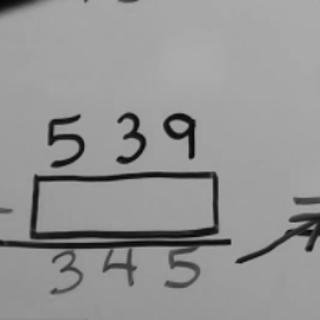 539
-
345